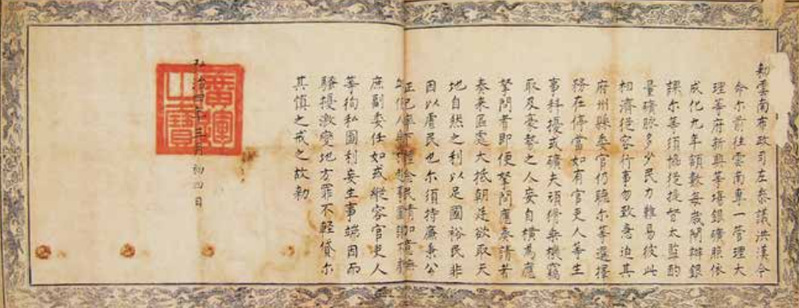 勅雲南布政司左叅議洪漢今
命尔前往雲南專一管理大
理等府新興等塲銀礦照依
成化九年額數每歲閘辦銀
課尔等須協從提督太监酌
量礦脉多少民力難易彼此
相濟從容行事勿致急迫其
府州縣委官仍聽尔等選擇
務在停當如有官吏人等生
事科擾或礦夫頭領乘機竊
取及豪勢之人妄自橫爲應
拏問者即便拏問應奏請者
奏来區處大抵朝廷欲取天
地自然之利以足國裕民非
因以虐民也尔須持廉秉公
庶副委任如或縱容官吏人
等徇私圖利妄生事端因而
騷擾激變地方罪不輕貸尔
其慎之戒之故勅
弘治年三月初四日
廣運之寶